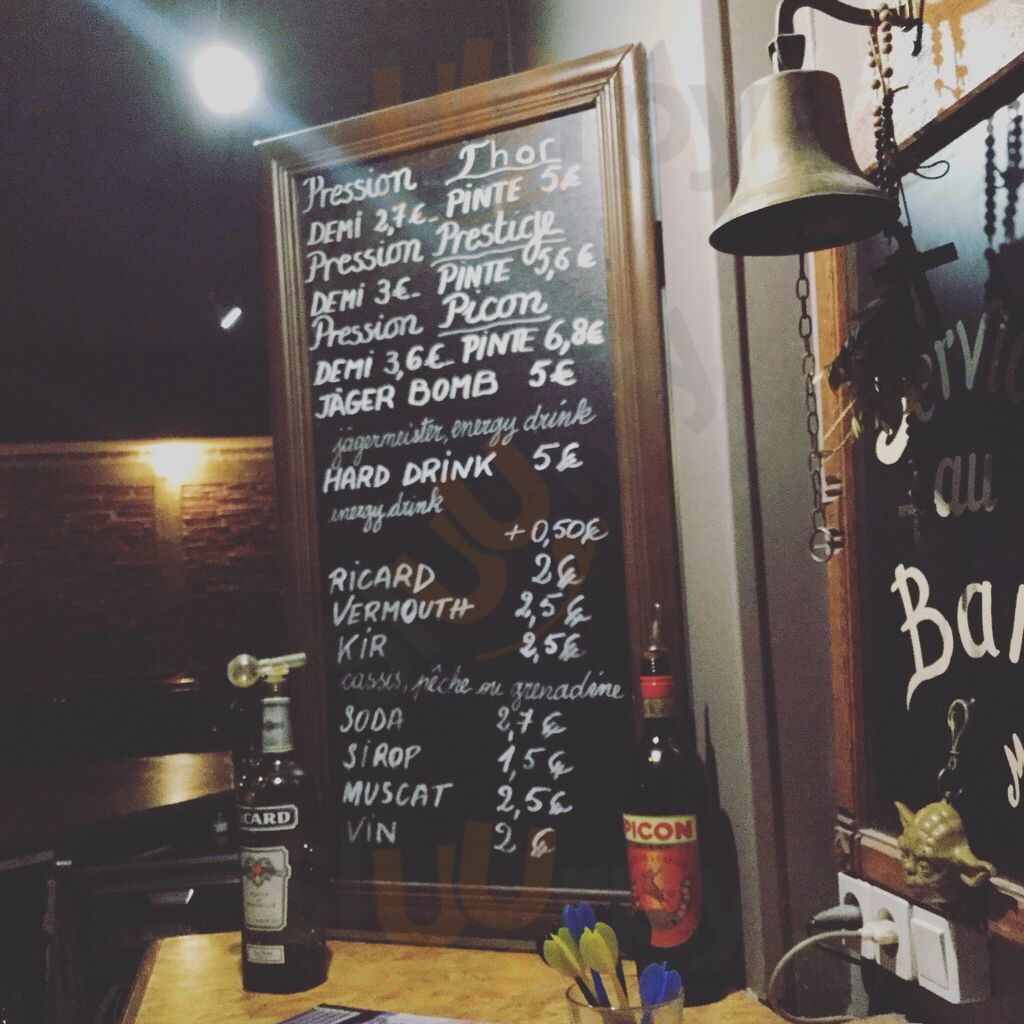 Pression Thor
DEMI 2,7€ PINTE 5€
Pression Prestige
DEMI 3€ PINTE 5,6€
Pression Picon
DEMI 3,6€ PINTE 6,8€
JÄGER BOMB 5€
jägermeister, energy drink
HARD DRINK 5€
energy drink
+0,50€
RICARD 2€
VERMOUTH 2,5€
KIR 2,5€
cassis, pêche ou grenadine
SODA 2,7€
SIROP 1,5€
MUSCAT 2,5€
VIN 2€
ICARD
PICON
au